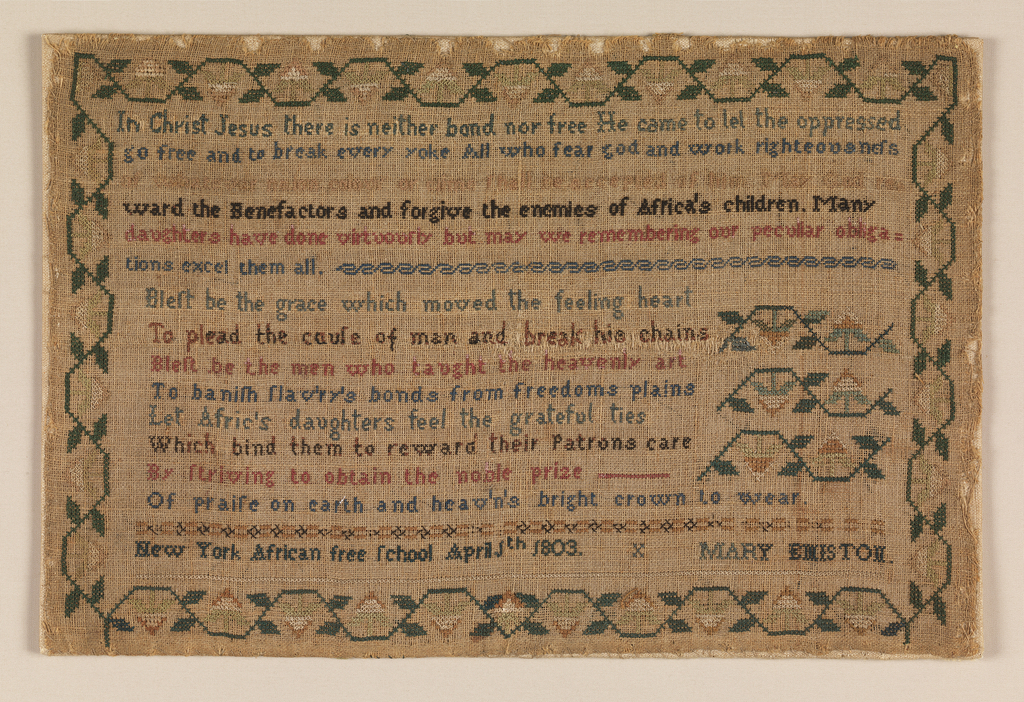 In Christ Jesus there is neither bond nor free He came to let the oppressed
go free and to break every yoke All who fear god and work righteousneſs
accepted of
ward the Benefactors and forgive the enemies of Africa's children. Many
daughters have done virtuouſly but may we remembering our peculiar obliga=
tions excel them all.
Bleſt be the grace which moved the feeling heart
To plead the cauſe of man and break his chains
Bleſt be the men who taught the heavenly art
To baniſh ſlav'ry's bonds from freedoms plains
Let Afric's daughters feel the grateful ties
Which bind them to reward their Patrons care
By ſtriving to obtain the noble prize
Of praiſe on earth and heav'n's bright crown to wear.
New York African free ſchool April 1th 1803. X MARY EMISTON.